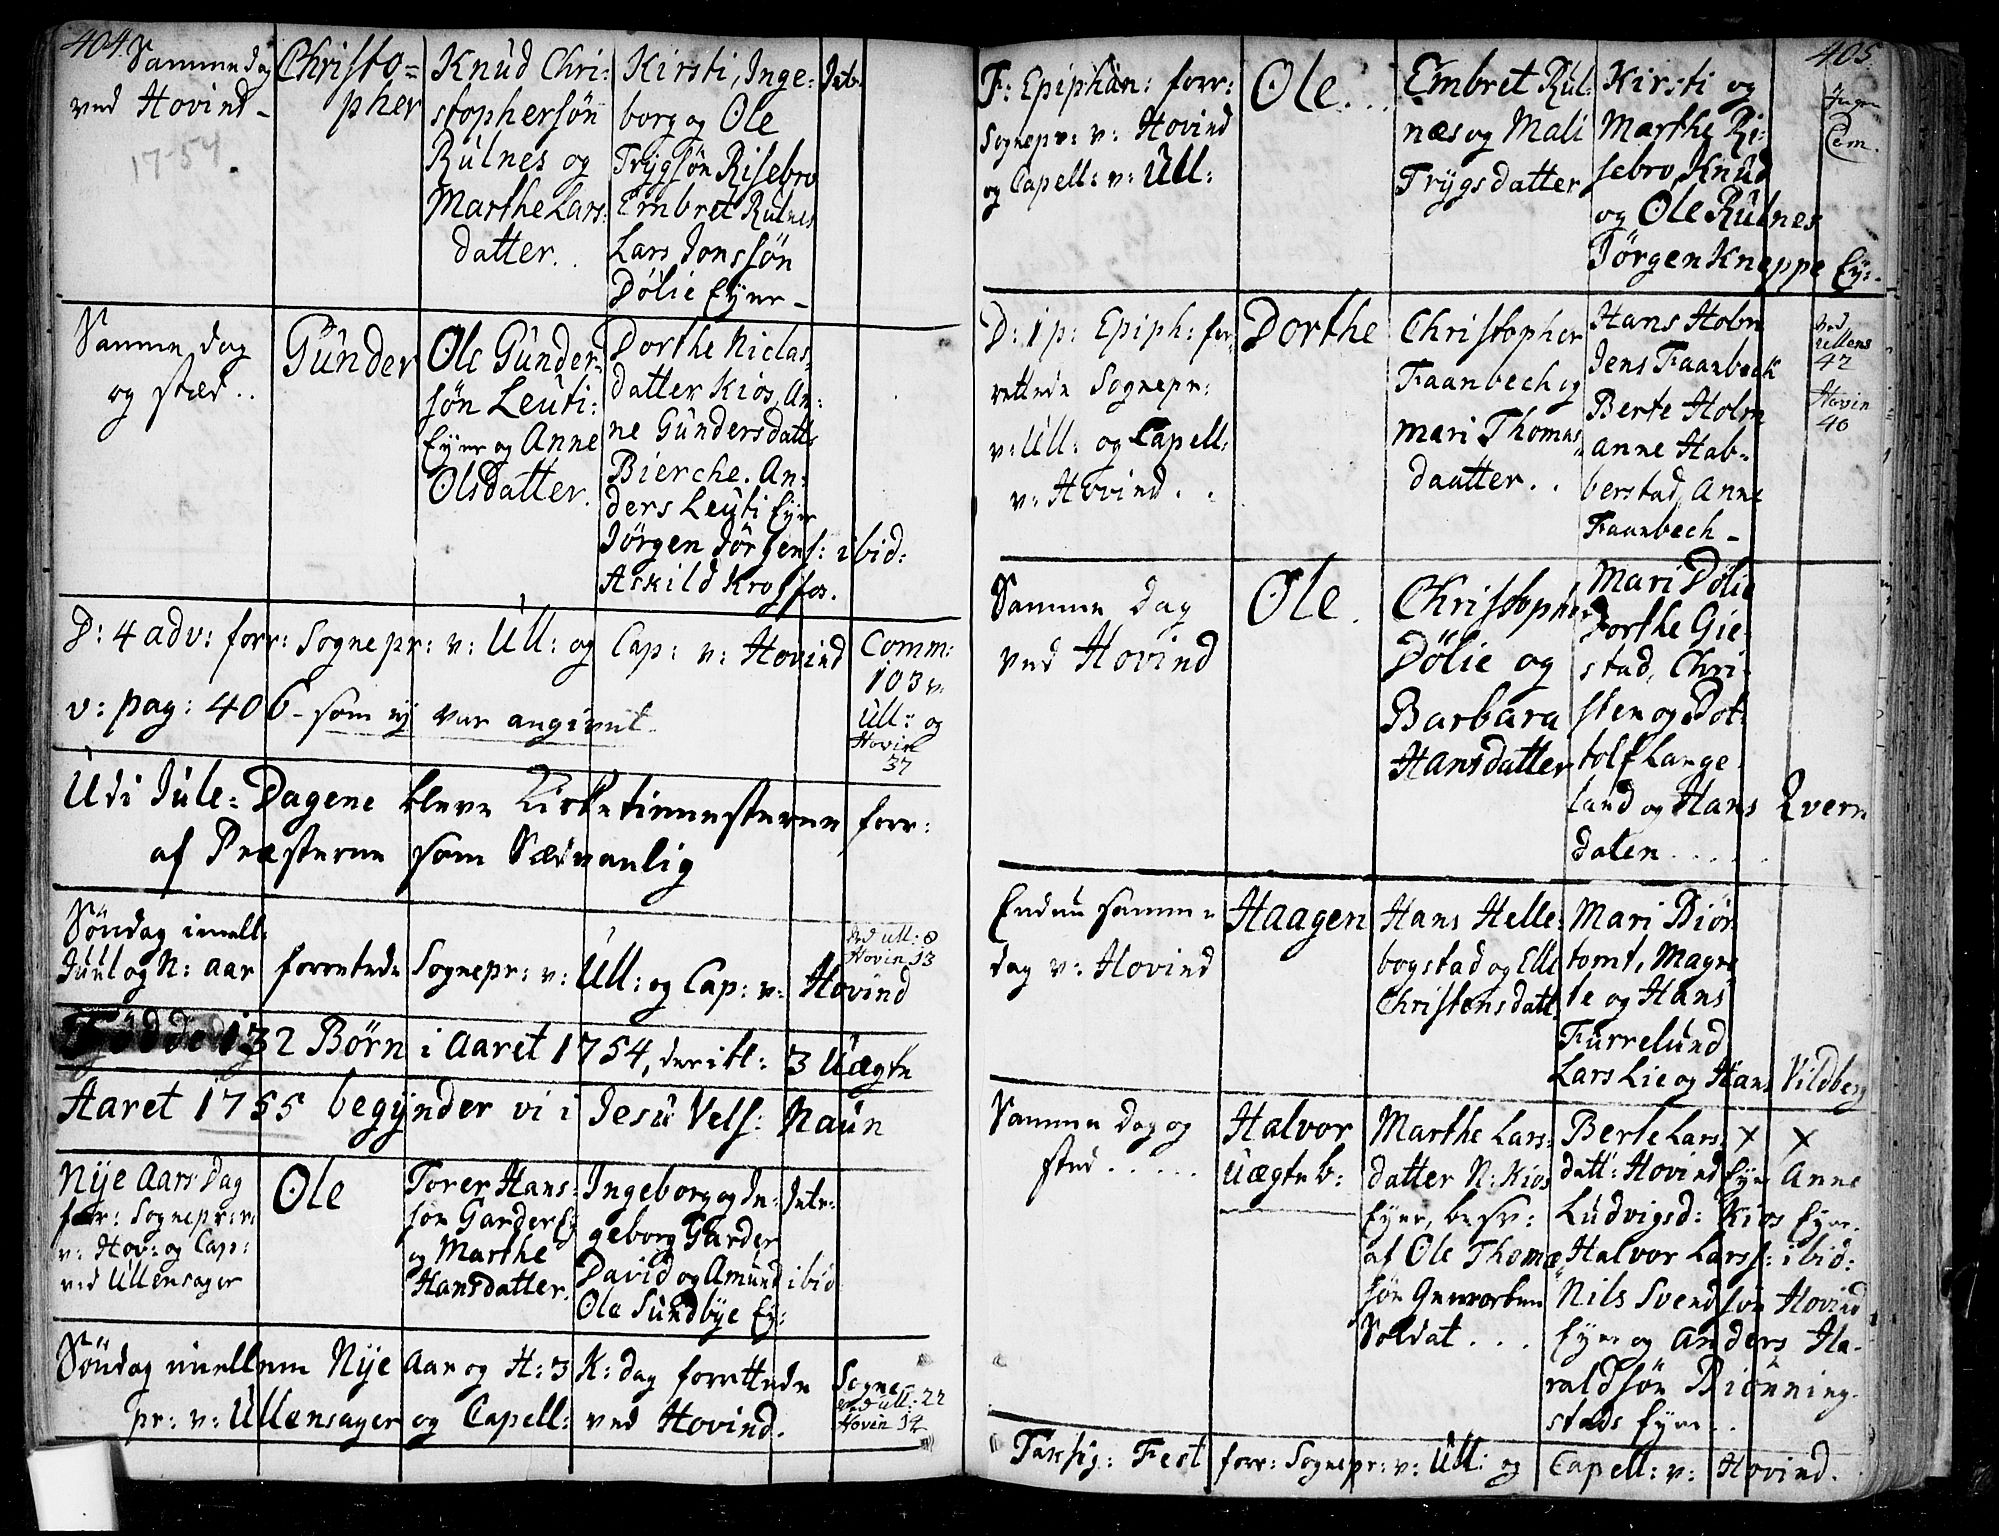 404.
Samme dag
ved Hovind -
17-54.
Christo=
pher
Knud Chri-
stophersøn
Rulnes og
Marthe Lars:
datter.
Kirsti, Inge-
borg og Ole
Trygsøn Risebro
Embret Rulnes
Lars Jonssøn
Dølie Eyer -
Intr.
Samme dag
og sted ..
Gunder
Ole Gunder-
søn Leuti:
Eyer og Anne
Olsdatter.
Dorthe Niclas-
datter Kios, An:
ne Gundersdatt:
Bierche. An:
ders Leuti Eyer
Jørgen Jørgens: ibid:
Askild Krogfos.
D: 4 adv: forr: Sognepr: v: Ull: og Cap: v: Hovind
v: pag: 406 - som ej var angivet
Comm:
103 v.
Ull: og
Hovin
37
Udi Jule=Dagene bleve Kirketienesterne forr:
af Præsterne som Sædvanlig
Søndag imell:
Juul og N: aar forrettede Sognepr: v: Ull: og Cap: v: Hovind
Ved Ull: 8
Hovin 13
Fødde 132 Børn i Aaret 1754, der ibl: 3 Uægte
Aaret 1755 begynder vi i Jesu Vels: Naun
Nye Aars Dag
forr: Sognepr:
v: Hov: og Cap:
ved Ullensager
Ole
Torer Hans-
søn Garder Ey
og Marthe
Hansdatter.
Ingeborg og In-
geborg Garder
David og Amund ibid
Ole Sundbye Ey:
Intr:
Søndag imellem Nye Aar og H: 3 K: dag forrettede Sogne-
pr: v: Ullensager og Capell: ved Hovind.
Ved Ull: 22
Hovin 14
405
F: Epiphan: forr:
Sognepr: v: Hovind
og Capell: v: Ull:
Ole..
Embret Rul-
næs og Mali
Trygsdatter
Kirsti og
Marthe Ri-
sebro, Knud
og Ole Rulnes
Jørgen Kneppe Ey:.
Ingen
Com.
D: 1 p: Epiph: for-
rettede Sognepr:
v: Ull: og Capell:
v: Hovind..
Dorthe
Christopher
Faanbech og
Mari Thomas
daatter..
Hans Holm
Jens Faanbeck
Berte Holm
Anne Hab-
berstad, Anne
Faanbech -
Ved
Ullens
42
Hovin
40
Samme Dag
ved Hovind
Ole.
Christopher
Dølie og
Barbara
Hansdatter
Mari Dølie
Dorthe Gie-
stad, Chri-
sten og Bot-
tolf Lange-
land og Hans Qvern
dalen.....
Endnu samme
dag v: Hovind
Haagen
Hans Helle-
bogstad og Elle
Christensdatt:
Mari Biør
tomt, Magre-
te og Hans
Furrelund
Lars Lie og Hans Vildberg
Samme Dag og
sted.....
Halvor
Uægte b:
Marthe Lars:
datter N: Kios
Eyer, besv:
af Ole Thomæ
søn Gevorben
Soldat...
Berte Lars: x x
datt: Hovind Eyer Anne
Ludvigsd: Kios Eyer.
Halvor Larss: ibid:
Nils Svendsøn Hovind
Eyer og Anders Ha-
raldsøn Biønning-
stads Eyer..
Taksig: Fest forr: Sognepr: v: Ull: og Capell: v: Hovind.